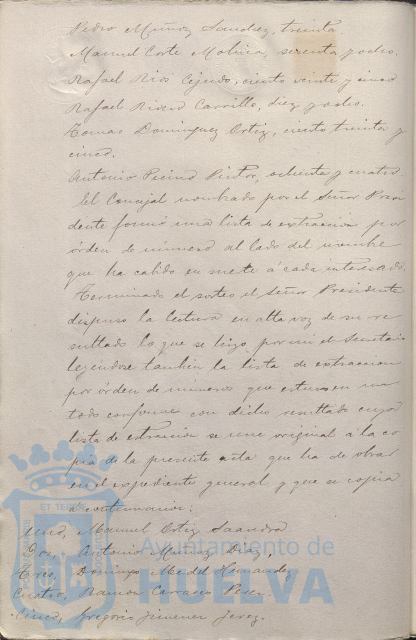 Pedro Muñoz Sanchez, treinta
Manuel Corte Molina, sesenta y ocho.
Rafael Rios Cejudo, ciento veinte y cinco
Rafael Rivero Carrillo, diez y ocho.
Tomas Dominguez Ortiz, ciento treinta y
cinco.
Antonio Pecino Pintor, ochenta y cuatro
El Concejal nombrado por el Señor Presi
dente formó una lista de extraccion por
órden de número al lado del nombre
que ha cabido en suerte á cada interesado.
Terminado el sorteo el Señor Presidente
dispuso la lectura en alta voz de su re
sultado lo que se hizo por mi el Secretario
leyendose tambien la lista de extraccion
por órden de números que estuvo en un
todo conforme con dicho resultado cuya
lista de extraccion se une original á la co
pia de la presente acta que ha de obrar
en el expediente general y que se copia
á continuacion:
Uno, Manuel Ortiz Saavedra
Dos, Antonio Muñoz Diaz,
Tres, Domingo M. del Hernandez
Cuatro, Ramon Carrasco Perez
Cinco, Gregorio Jimenez Jerez.
Ayuntamiento de
HUELVA